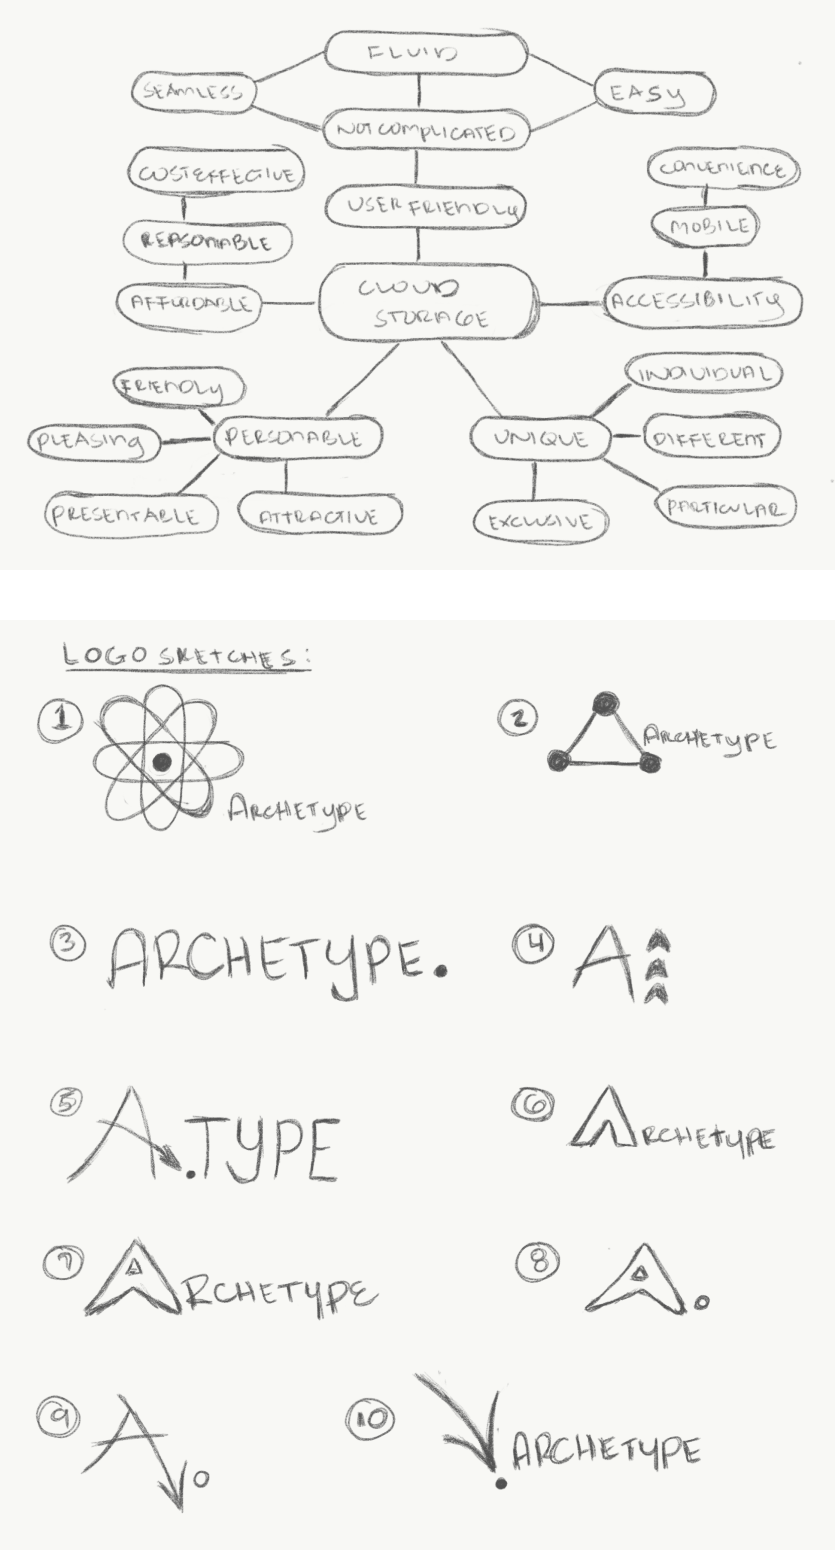 FLUID
SEAMLESS
EASY
NOT COMPLICATED
COST EFFECTIVE
CONVENIENCE
USER FRIENDLY
MOBILE
REASONABLE
CLOUD
STORAGE
AFFORDABLE
ACCESSIBILITY
FRIENDLY
INDIVIDUAL
PLEASING
PERSONABLE
UNIQUE
DIFFERENT
PRESENTABLE
ATTRACTIVE
EXCLUSIVE
PARTICULAR
LOGO SKETCHES:
1
ARCHETYPE
2
ARCHETYPE
3
ARCHETYPE.
4
A
5
A.TYPE
6
ARCHETYPE
7
ARCHETYPE
8
A.
9
A
10
ARCHETYPE